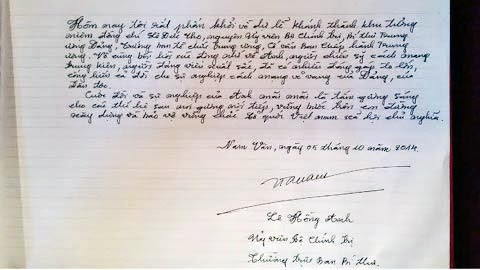 Hôm nay tôi rất phấn khởi về dự lễ khánh thành khu tưởng
niệm đồng chí Lê Đức Thọ, nguyên Ủy viên Bộ Chính trị, Bí thư Trung
ương Đảng, Trưởng ban tổ chức Trung ương, Cố vấn Ban Chấp hành Trung
ương. Vô cùng biết ơn đồng chí về Anh, người chiến sỹ cách mạng
trung kiên, người đảng viên xuất sắc đã có nhiều đóng góp to lớn,
cống hiến cả đời cho sự nghiệp cách mạng vẻ vang của Đảng, của
dân tộc.
Cuộc đời và sự nghiệp của Anh mãi mãi là tấm gương sáng
cho các thế hệ sau noi gương nối tiếp, vững bước trên con đường
xây dựng và bảo vệ vững chắc tổ quốc Việt nam xã hội chủ nghĩa.
Nam Vân, ngày 05 tháng 10 năm 2014.
Lê Hồng Anh
Ủy viên Bộ Chính Trị
Thường trực Ban Bí thư.